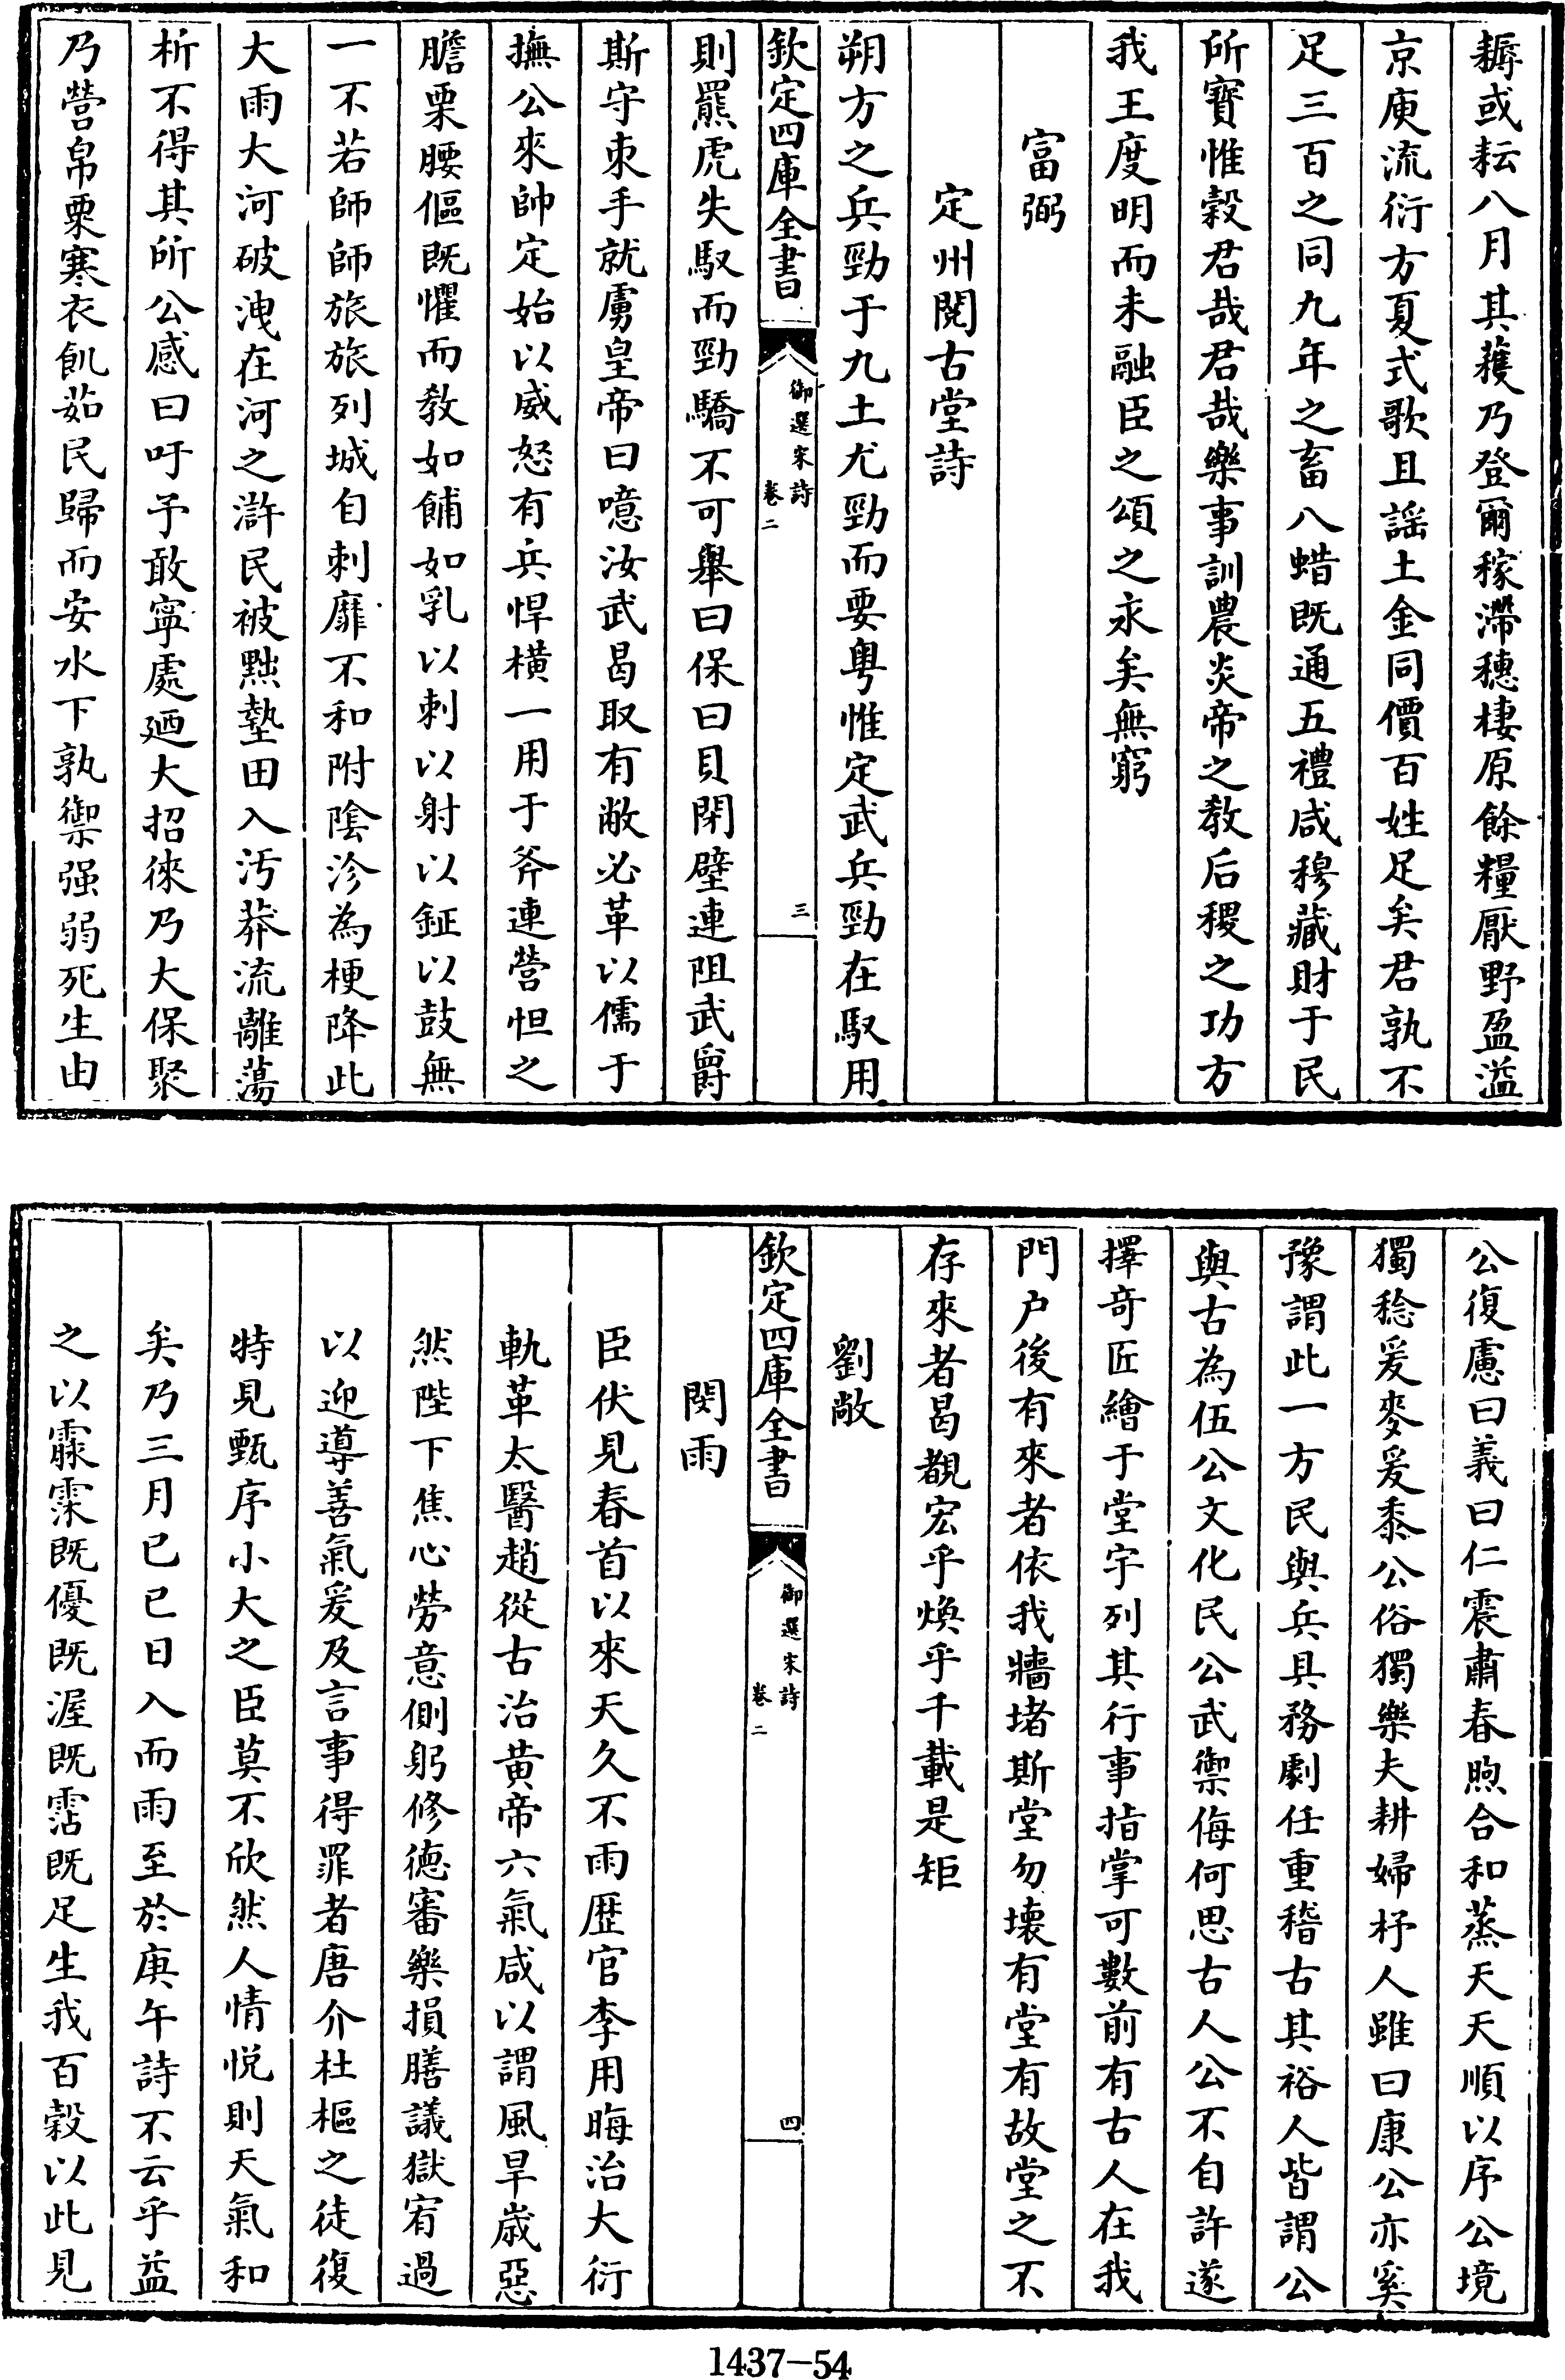 耨或耘八月其蓷乃登爾稼滯穗棲原餘糧厭野盈溢
京庾流衍方夏式歌且謡土金同價百姓足矣君孰不
足三百之同九年之畜八蜡既通五禮咸穆藏財于民
所寳惟穀君哉君哉樂事訓農炎帝之教后稷之功方
我王度明而未融臣之頌之永矣無窮
富弼
定州閲古堂詩
朔方之兵勁于九土尤勁而要粤惟定武兵勁在馭用
欽定四庫全書
御選宋詩
卷二
三
則羆虎失馭而勁驕不可舉曰保曰貝閉壁連阻武爵
斯守朿手就虜皇帝曰噫汝武曷取有敝必革以儒于
撫公來帥定始以威怒有兵悍横一用于斧連營怛之
膽栗腰傴既懼而教如餔如乳以刺以射以鉦以鼓無
一不若師師旅旅列城自刺靡不和附隂沴為梗降此
大雨大河破洩在河之滸民被㸃墊田入汚莽流離蕩
析不得其所公感曰吁予敢寧處廼大招徠乃大保聚
乃營帛粟寒衣飢茹民歸而安水下孰禦强弱死生由
公復慮曰義曰仁震肅春煦合和蒸天天順以序公境
獨稔爰麥爰黍公俗獨樂夫耕婦杼人雖曰康公亦奚
豫謂此一方民與兵具務劇任重稽古其裕人皆謂公
與古為伍公文化民公武禦侮何思古人公不自許遂
擇竒匠繪于堂宇列其行事指掌可數前有古人在我
門户後有來者依我牆堵斯堂勿壊有堂有故堂之不
存來者曷覩宏乎煥乎千載是矩
劉敞
欽定四庫全書
御選宋詩
卷二
四
閔雨
臣伏見春首以來天久不雨歴官李用晦治大衍
軌革太醫趙從古治黄帝六氣咸以謂風旱歳惡
然陛下焦心勞意側躬修徳審樂損膳議獄宥過
以迎導善氣爰及言事得罪者唐介杜樞之徒復
特見甄序小大之臣莫不欣然人情悦則天氣和
矣乃三月已已日入而雨至於庚午詩不云乎益
之以霢霂既優既渥既霑既足生我百穀以此見
1437-54